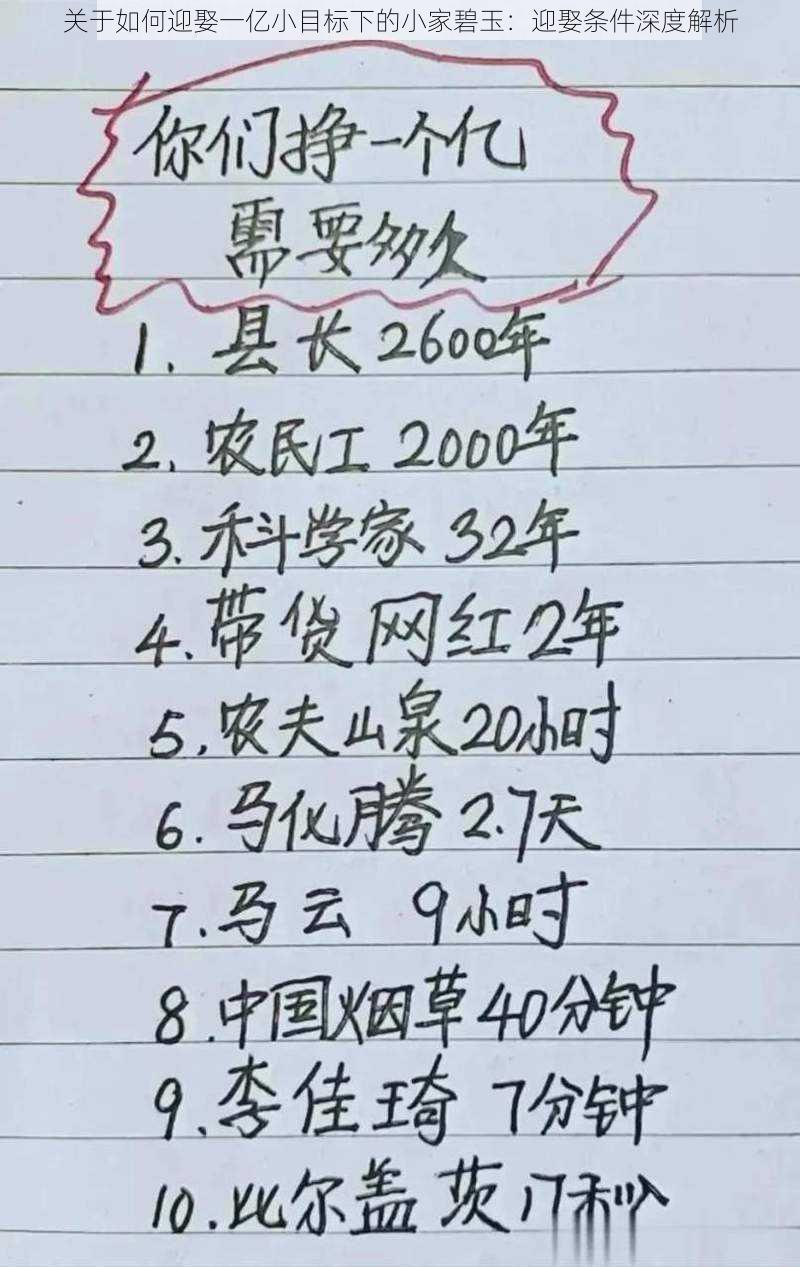 关于如何迎娶一亿小目标下的小家碧玉：迎娶条件深度解析
你们挣一个亿
需要多久
1. 县长 2600年
2. 农民工 2000年
3. 科学家 32年
4. 带货网红 2年
5. 农夫山泉 20小时
6. 马化腾 2.7天
7. 马云 9小时
8. 中国烟草 40分钟
9. 李佳琦 7分钟
10. 比尔盖茨 17秒